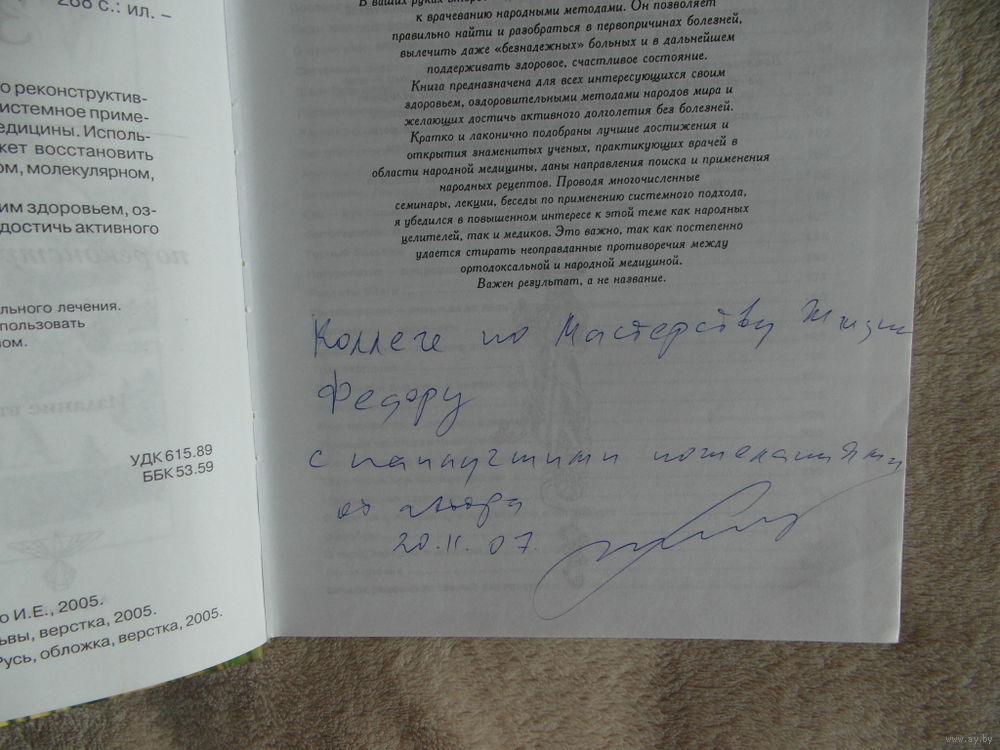 288 с.: ил. –
о реконструктив-
системное приме-
едицины. Исполь-
жет восстановить
ом, молекулярном,
им здоровьем, оз-
достичь активного
льного лечения.
пользовать
ом.
УДК 615.89
ББК 53.59
о И.Е., 2005.
ьвы, верстка, 2005.
Русь, обложка, верстка, 2005.
В ваших руках
к врачеванию народными методами. Он позволяет
правильно найти и разобраться в первопричинах болезней,
вылечить даже «безнадежных» больных и в дальнейшем
поддерживать здоровое, счастливое состояние.
Книга предназначена для всех интересующихся своим
здоровьем, оздоровительными методами народов мира и
желающих достичь активного долголетия без болезней.
Кратко и лаконично подобраны лучшие достижения и
открытия знаменитых ученых, практикующих врачей в
области народной медицины, даны направления поиска и применения
народных рецептов. Проводя многочисленные
семинары, лекции, беседы по применению системного подхода,
я убедился в повышенном интересе к этой теме как народных
целителей, так и медиков. Это важно, так как постепенно
удается стирать неоправданные противоречия между
ортодоксальной и народной медициной.
Важен результат, а не название.
Коллеге по Мастерству Жизни
Федору
с наилучшими пожеланиями
от автора
20.11.07.
www.ay.by